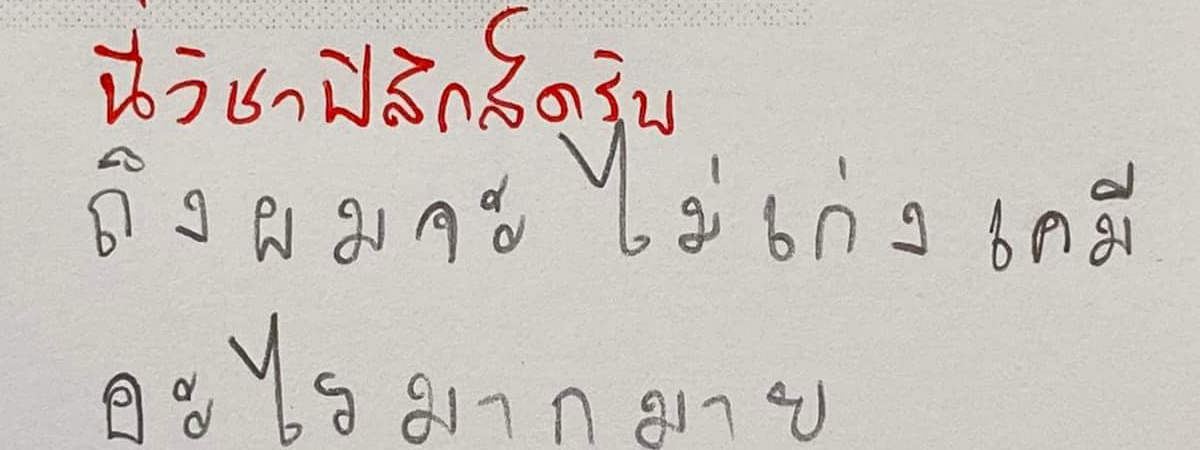 นี่วิชาฟิสิกส์ครับ
ถึงผมจะไม่เก่งเคมี
อะไรมากมาย